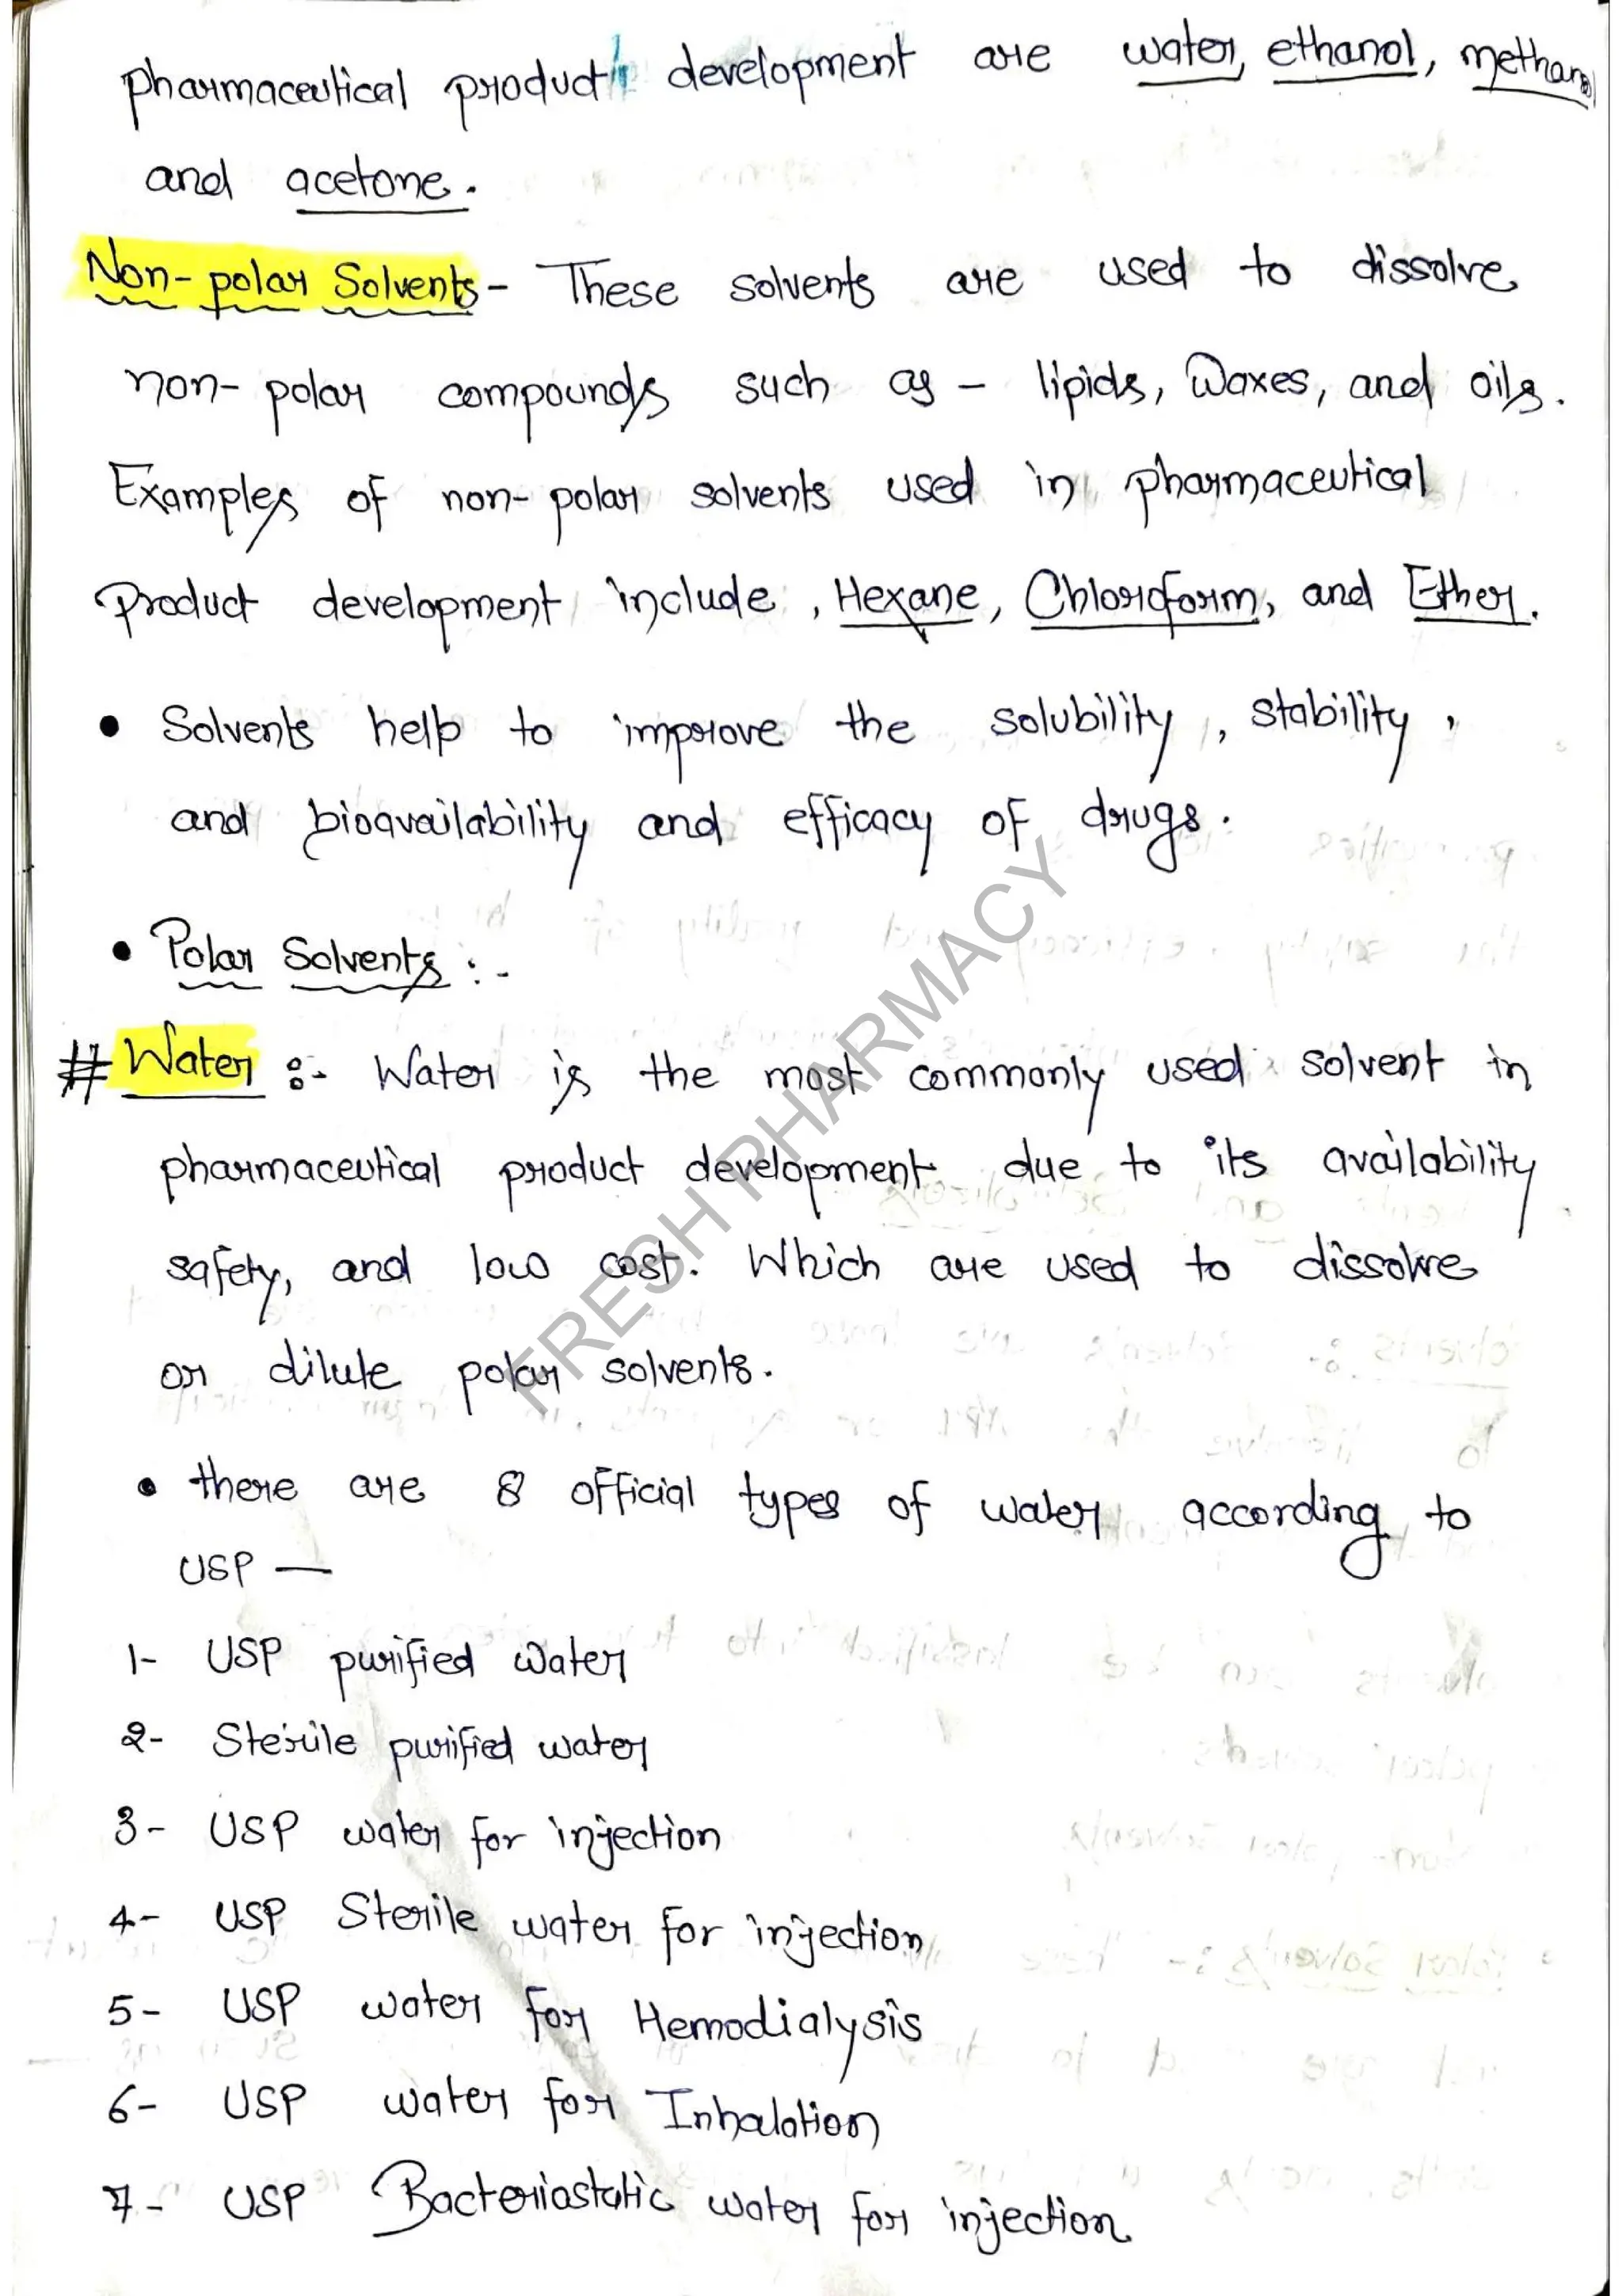 pharmaceutical product development are water, ethanol, methanol
and acetone.
Non-polar Solvents - These solvents are used to dissolve
non-polar compounds such as - lipids, Waxes, and oils.
Examples of non-polar solvents used in pharmaceutical
Product development include, Hexane, Chloroform, and Ether.
• Solvents help to improve the solubility, stability,
and bioavailability and efficacy of drugs.
• Polar Solvents :-
# Water :- Water is the most commonly used solvent in
pharmaceutical product development due to its availability
safety, and low cost. Which are used to dissolve
or dilute polar solvents.
• there are 8 official types of water according to
USP —
1- USP purified Water
2- Sterile purified water
3- USP water for injection
4- USP Sterile water for injection
5- USP water for Hemodialysis
6- USP water for Inhalation
7- USP Bacteriostatic water for injection
FRESH PHARMACY